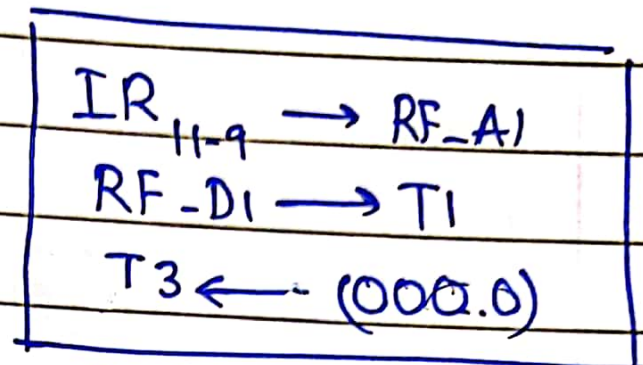 IR₁₁₋₉ → RF_A1
RF_D1 → T1
T3 ← (000.0)